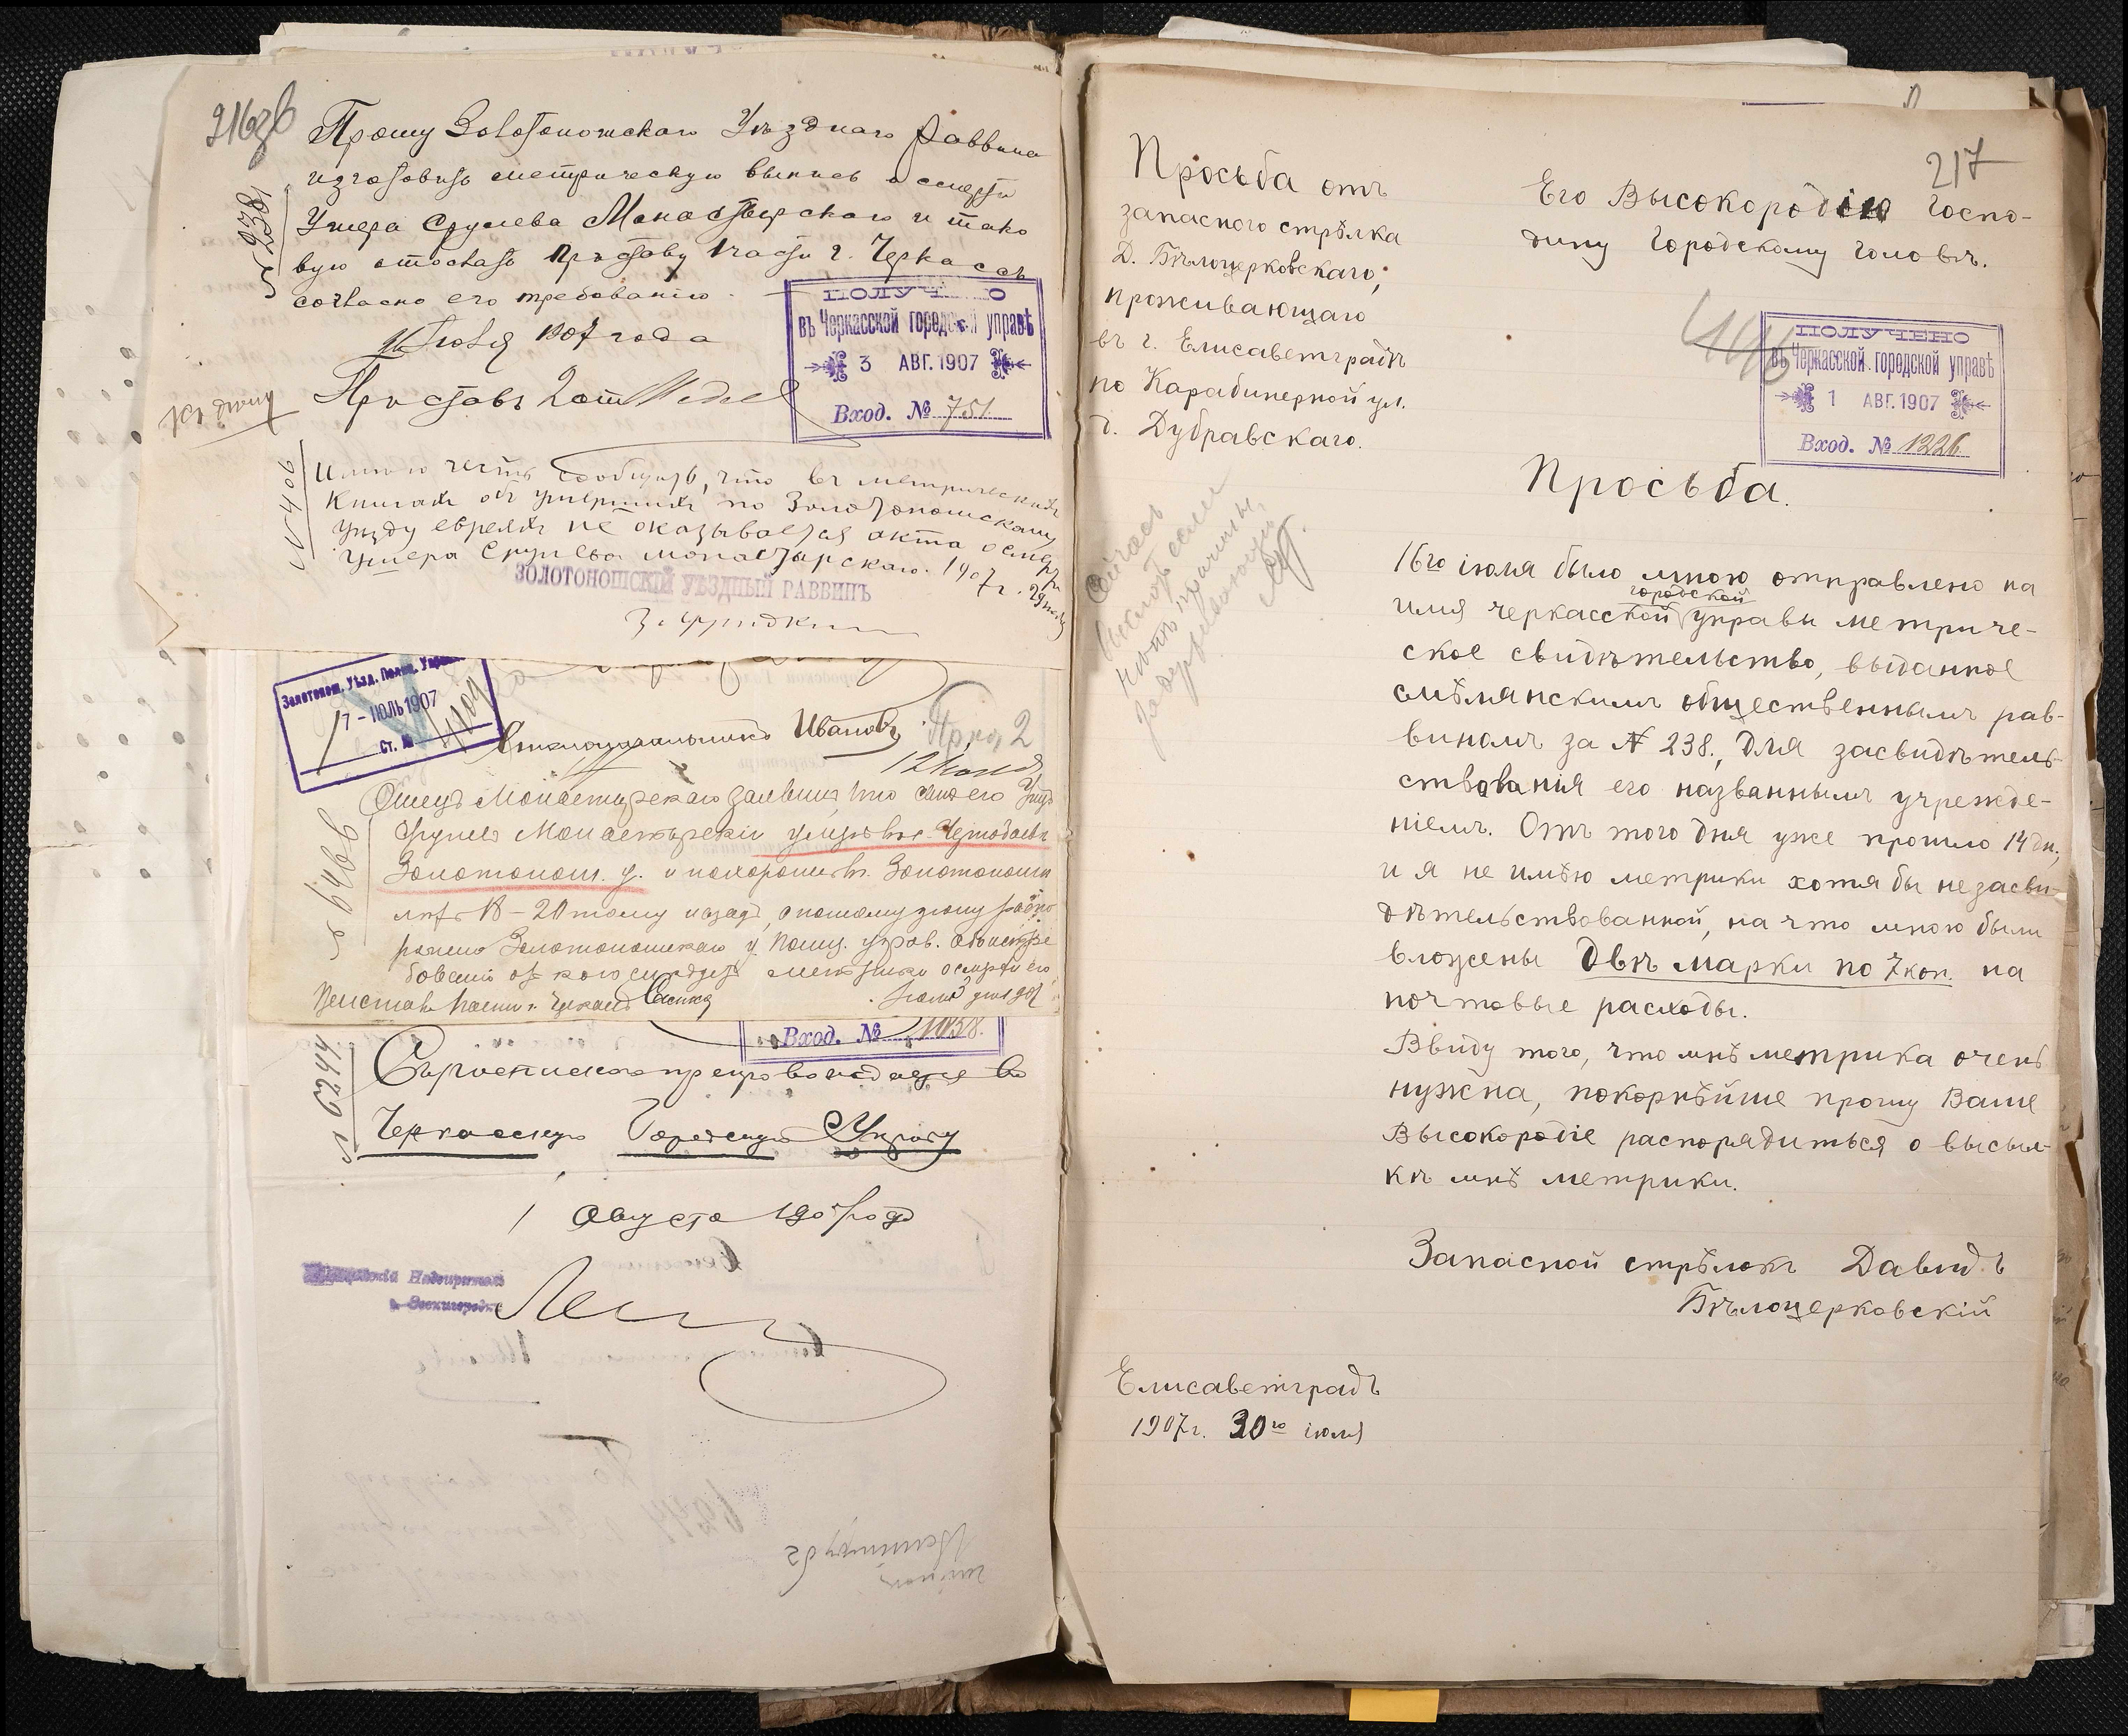 216зв
Прошу Золотоношскаго Уѣзднаго Раввина
изготовить метрическую выпись о смерти
Умера Срулева Монастырскаго и тако
вую отослать Приставу 1 части г. Черкассъ
согласно его требованію.
Іюля 1907 года
Приставъ 2 ст.
ПОЛУЧЕНО
въ Черкасской городской управѣ
3 АВГ. 1907
Вход. № 751
Имѣю честь сообщить, что въ метрическихъ
книгахъ объ умершихъ по Золотоношскому
уѣзду евреяхъ не оказывается акта о смерти
Умера Срулева Монастырскаго. 1907 г. 29 іюля
№ 406
ЗОЛОТОНОШСКІЙ УѢЗДНЫЙ РАВВИНЪ
Золотонош. Уѣзд. Полиц. Управ.
17 - ІЮЛЬ 1907
Ст. №
Столоначальникъ Ивановъ
Отецъ Монастырскаго заявилъ, что сынъ его Умеръ
Срулевъ Монастырскій умеръ въ с. Чемодановкѣ
Золотонош. у. и похороненъ въ Золотоноши
лѣтъ 18-20 тому назадъ, а потому прошу распо
ряженія Золотоношскаго у. полиц. управ. объ истре
бованіи отъ кого слѣдуетъ метрики о смерти его
Приставъ 1 части г. Черкассъ
Вход. № 1038.
№ 6244
Вгрученіемъ препровождается въ
Черкасскую Городскую Управу
1 Августа 1907 года
Надзиратель
м. Звенигородки
217
Просьба отъ
запасного стрѣлка
Д. Бѣлоцерковскаго,
проживающаго
въ г. Елисаветградѣ
по Карабинерной ул.
д. Дубравскаго.
Его Высокородію Госпо-
дину Городскому Головѣ.
ПОЛУЧЕНО
въ Черкасской городской управѣ
1 АВГ. 1907
Вход. № 1226
Просьба.
16го іюля было мною отправлено на
имя черкасской городской управы метриче-
ское свидѣтельство, выданное
смѣлянскимъ общественнымъ рав-
виномъ за № 238, для засвидѣтель-
ствованія его названнымъ учрежде-
ніемъ. Отъ того дня уже прошло 14 дн.,
и я не имѣю метрики хотя бы незасви-
дѣтельствованной, на что мною были
вложены двѣ марки по 7 коп. на
почтовые расходы.
Ввиду того, что мнѣ метрика очень
нужна, покорнѣйше прошу Ваше
Высокородіе распорядиться о высыл-
кѣ мнѣ метрики.
Запасной стрѣлокъ Давидъ
Бѣлоцерковскій
Елисаветградъ
1907 г. 30го іюля